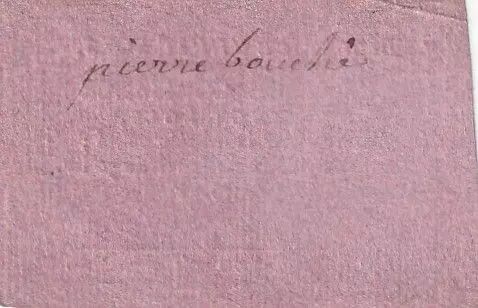 pierre bouché